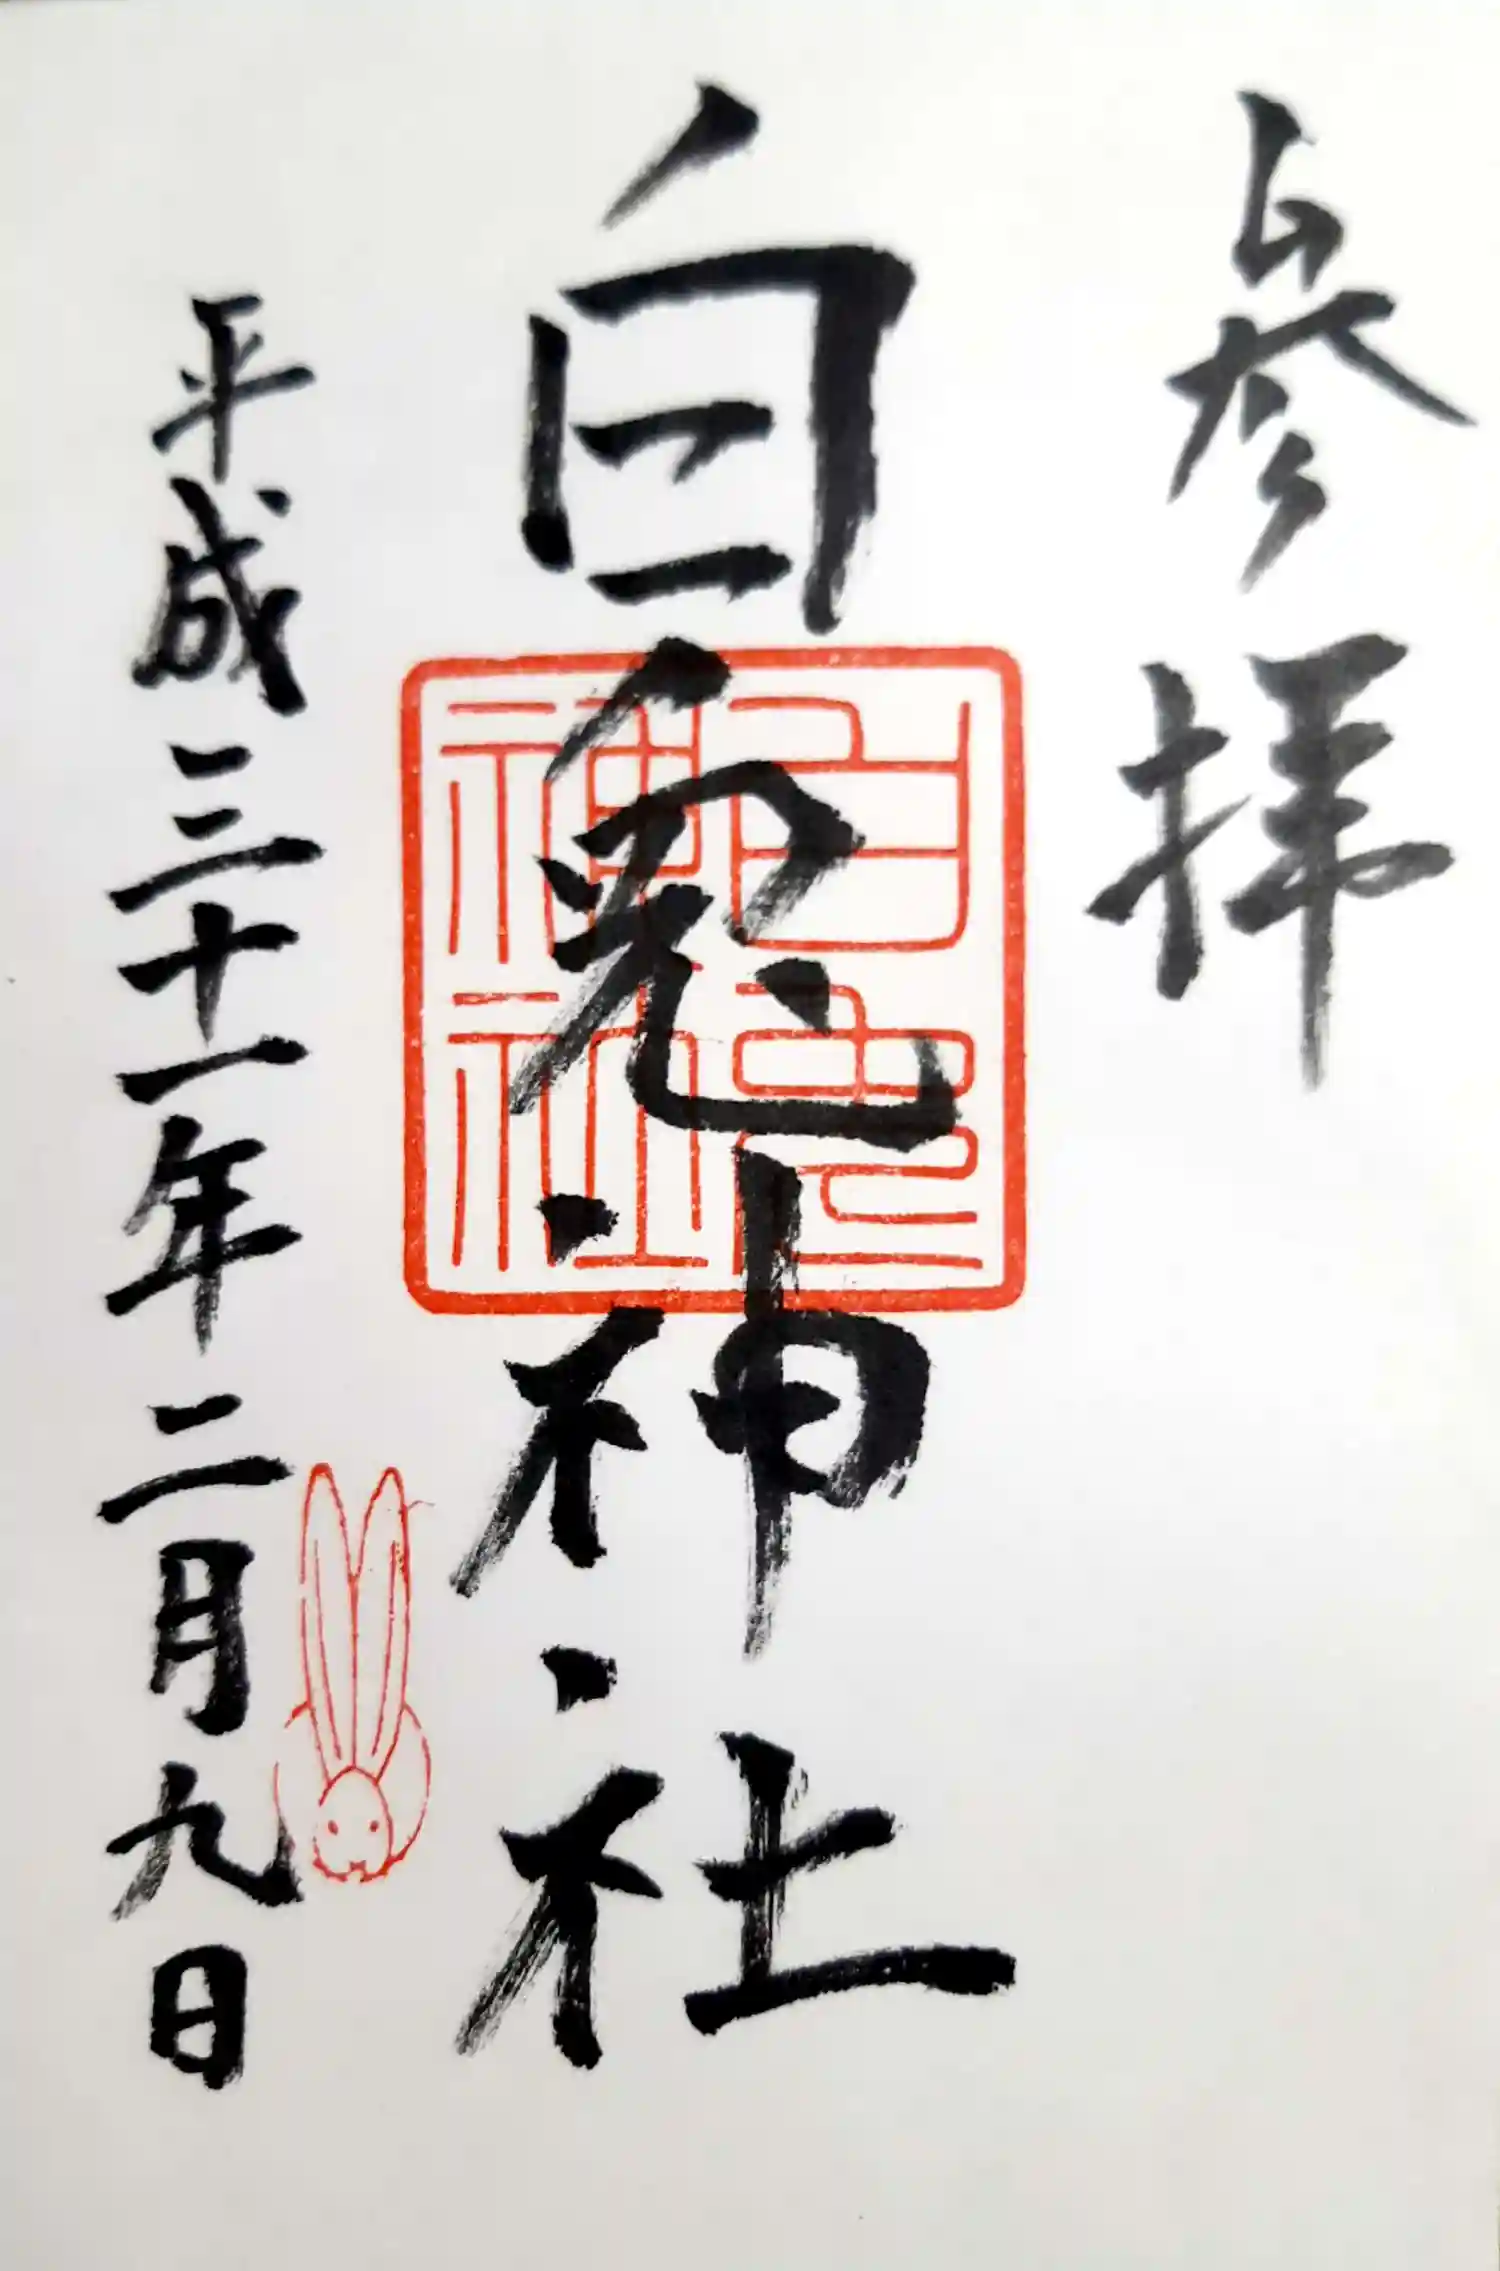 参拝
白兎神社
白兎
神社
平成三十一年二月九日